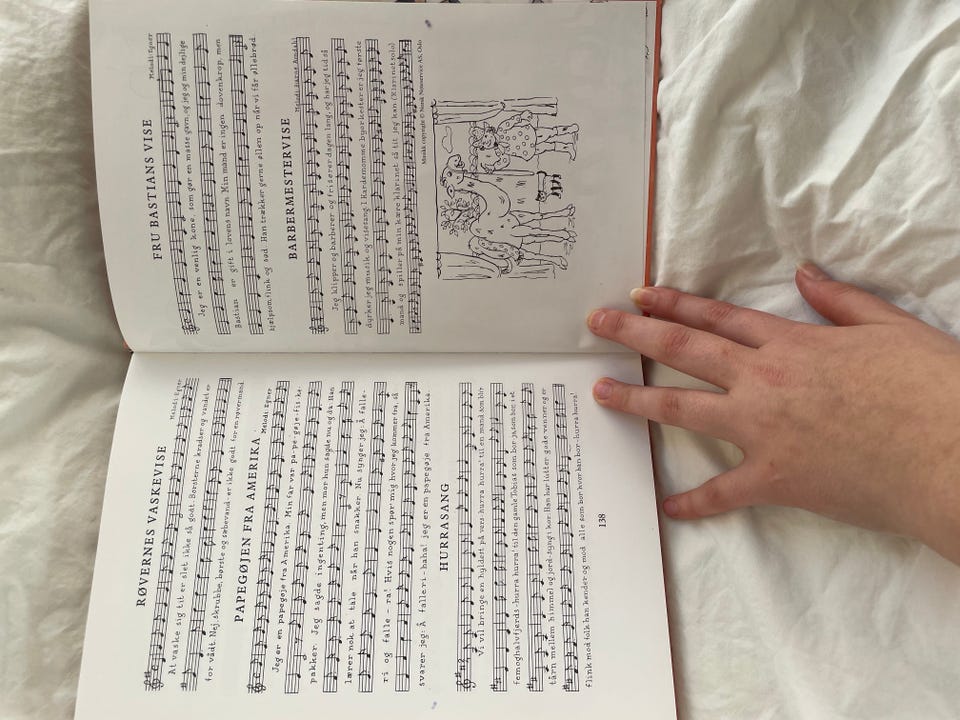 RØVERNES VASKEVISE
Melodi: Egner
At vaske sig tit er slet ikke så godt. Børsterne kradser og vandet er
for vådt. Nej, skrubbe, børste og sæbevand - er ikke godt for en røvermand.
PAPEGØJEN FRA AMERIKA
Melodi: Egner
Jeg er en papegøje fra Amerika. Min far var pa-pe-gøje-fis-ke-
pakker. Jeg sagde ingenting, men mor hun sagde nu og da: Han
lærer nok at tale når han snakker. Nu synger jeg: Å falle-
ri og falle-ra! Hvis nogen spør mig hvor jeg kommer fra, så
svarer jeg: Å falleri-haha! jeg er en papegøje fra Amerika.
HURRASANG
Vi vil bringe en hyldest på vers hurra hurra! til en mand som blir
femoghalvfjerds - hurra hurra! til den gamle Tobias som bor ja som bor i et
tårn mellem himmel og jord - syng i kor. Han har lutter gode venner og er
flink mod folk han kender og mod alle som bor hvor han bor - hurra hurra!
138
FRU BASTIANS VISE
Melodi: Egner
Jeg er en venlig kone, som gør en masse gavn, og jeg og min dejlige
Bastian er gift i lovens navn. Min mand er ingen dovenkrop, men
hjælpsom, flink og sød. Han trækker gerne øllen op når vi får øllebrød.
BARBERMESTERVISE
Melodi: Bjarne Amdahl
Jeg klipper og barberer og friserer dagen lang, og har jeg tid så
dyrker jeg musik og visesang. I Kardemomme byorkester er jeg første
mand og spiller på min kære klarinet så tit jeg kan (Klarinetsolo)
Musik copyright © Norsk Noteservice AS, Oslo